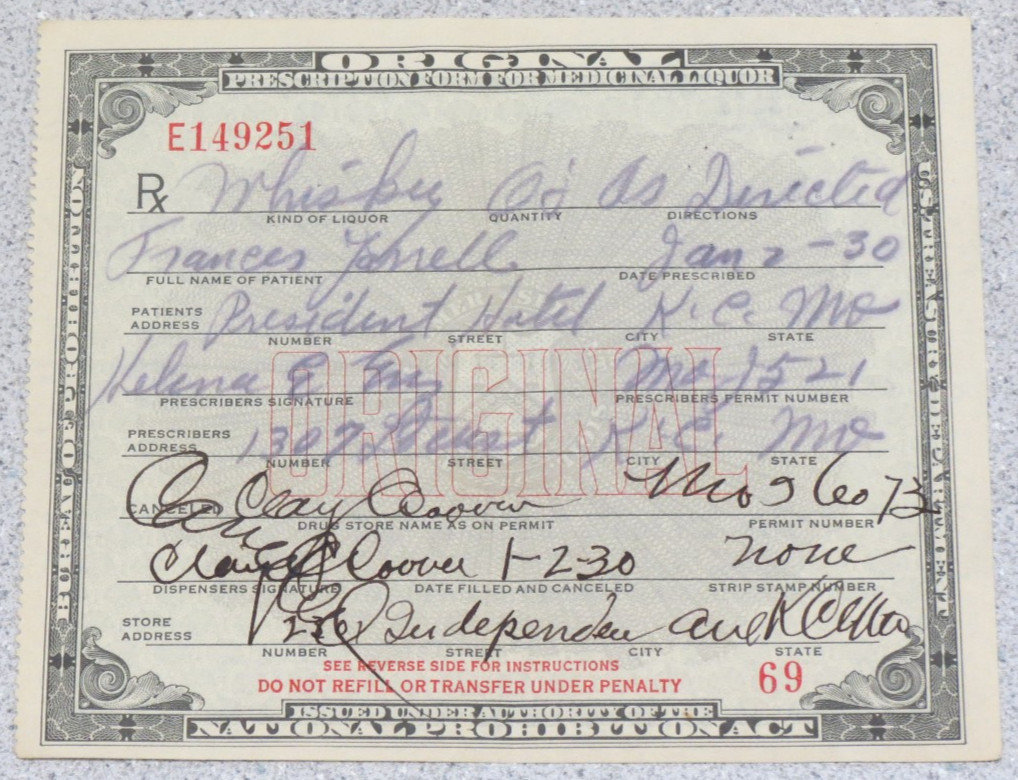 ORIGINAL
PRESCRIPTION FORM FOR MEDICINAL LIQUOR
E149251
Rx Whiskey As Directed
KIND OF LIQUOR QUANTITY DIRECTIONS
Frances Jan 2-30
FULL NAME OF PATIENT DATE PRESCRIBED
PATIENTS ADDRESS President Hotel K.C. Mo
NUMBER STREET CITY STATE
E Mo-1521
PRESCRIBERS SIGNATURE PRESCRIBERS PERMIT NUMBER
ORIGINAL
PRESCRIBERS ADDRESS 1307 K.C. Mo
NUMBER STREET CITY STATE
CANCELED Clay Coover Mo
DRUG STORE NAME AS ON PERMIT PERMIT NUMBER
Coover 1-2-30 none
DISPENSERS SIGNATURE DATE FILLED AND CANCELED STRIP STAMP NUMBER
STORE ADDRESS K C Mo
NUMBER STREET CITY STATE
SEE REVERSE SIDE FOR INSTRUCTIONS
DO NOT REFILL OR TRANSFER UNDER PENALTY 69
ISSUED UNDER AUTHORITY OF THE
NATIONAL PROHIBITION ACT